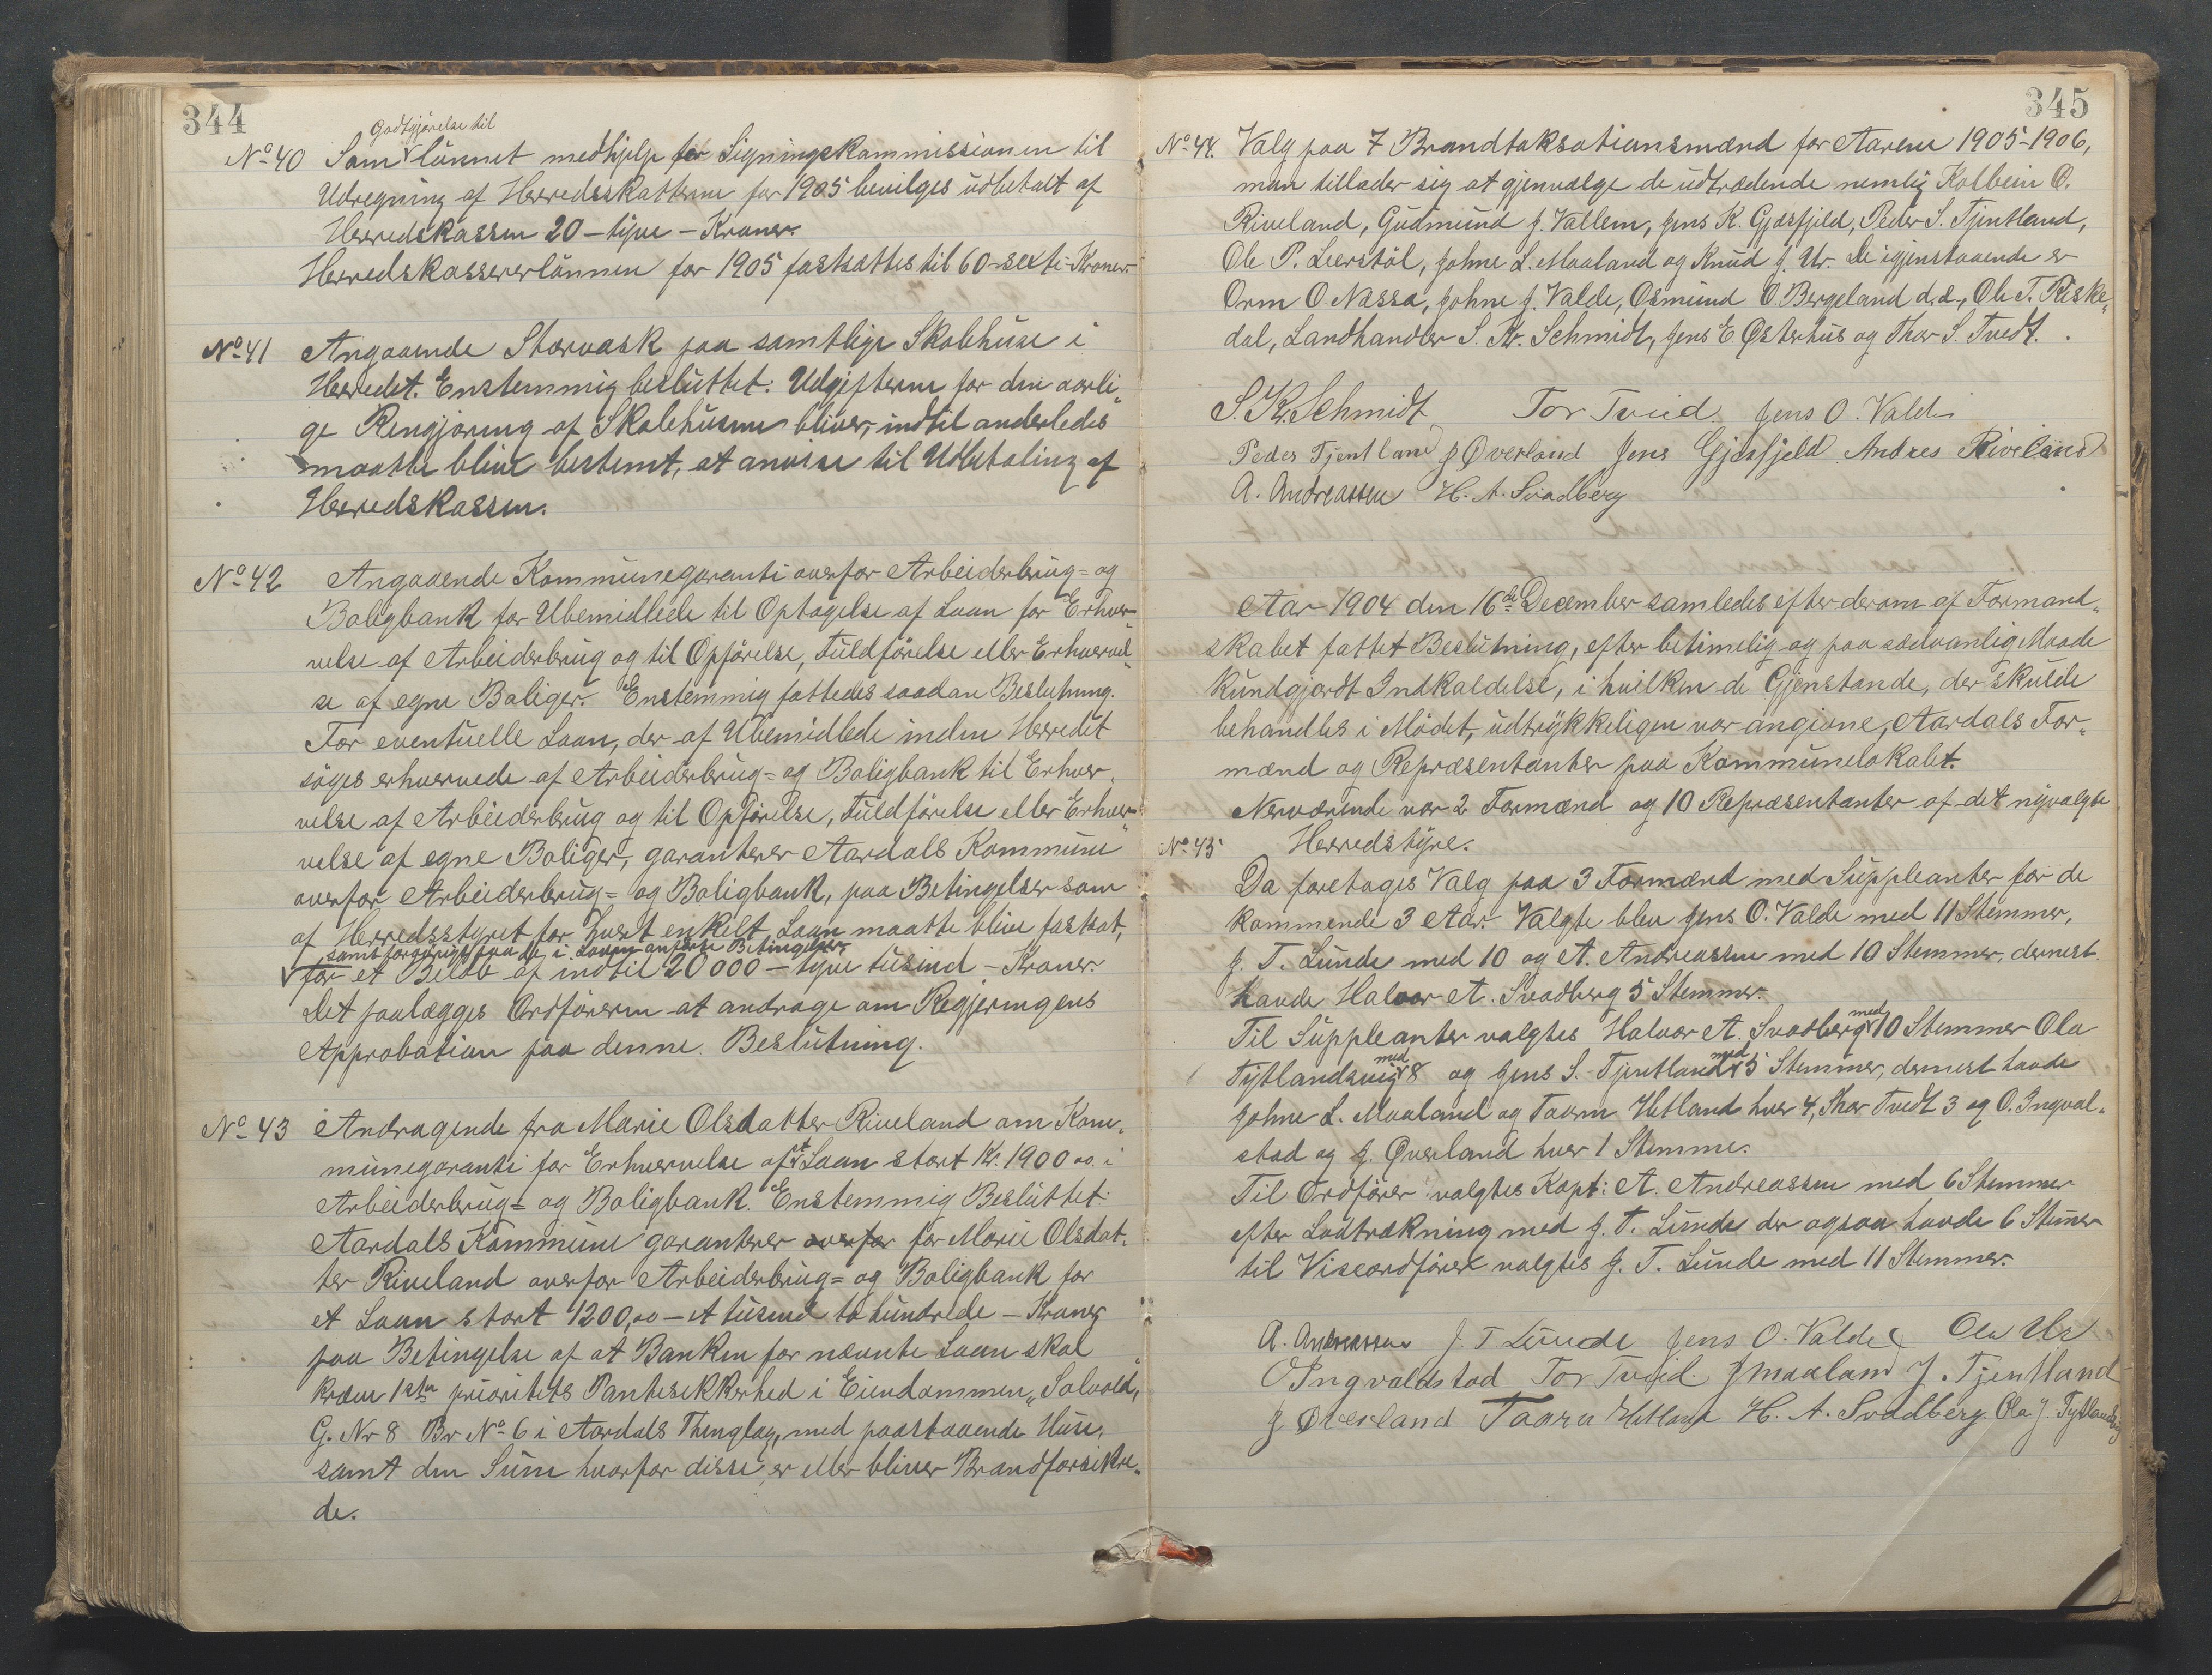 344
Godtgjørelse til
No 40 Som lønnet medhjelp for Ligningskommissionen til
Udregning af Herredsskatterne for 1905 bevilges udbetalt af
Herredskassen 20 – tyve – Kroner.
Herredskassererlønnen for 1905 fastsattes til 60 – sexti – Kroner.
No 41 Angaaende Storvask paa samtlige Skolehuse i
Herredet. Enstemmig besluttet: Udgifterne for den aarli„
ge Rengjøring af Skolehusene bliver, indtil anderledes
maatte blive bestemt, at anvise til Udbetaling af
Herredskassen.
No 42 Angaaende Kommunegaranti overfor Arbeiderbrug= og
Boligbank for Ubemidlede til Optagelse af Laan for Erhver„
velse af Arbeiderbrug og til Opførelse, Fuldførelse eller Erhvervel„
se af egne Boliger. Enstemmig fattedes saadan Beslutning.
For eventuelle Laan, der af Ubemidlede inden Herredet
søges erhvervede af Arbeiderbrug= og Boligbank til Erhver„
velse af Arbeiderbrug og til Opførelse, Fuldførelse eller Erhver„
velse af egne Boliger, garanterer Aardals Kommune
overfor Arbeiderbrug= og Boligbank, paa Betingelser som
af Herredsstyret for hvert enkelt Laan maatte blive fastsat,
samt forøvrigt paa de i Loven anførte Betingelser
for et Beløb af indtil 20000 – tyve tusind – Kroner.
Det paalægges Ordføreren at andrage om Regjeringens
Approbation paa denne Beslutning.
No 43 Andragende fra Marie Olsdatter Riveland om Kom„
munegaranti for Erhvervelse af et Laan stort Kr. 1900 00 i
Arbeiderbrug= og Boligbank. Enstemmig Besluttet:
Aardals Kommune garanterer overfor for Marie Olsdat„
ter Riveland overfor Arbeiderbrug= og Boligbank for
et Laan stort 1200,00 – et tusind to hundrede – Kroner
paa Betingelse af at Banken for nævnte Laan skal
kræve 1ste prioritets Pantesikkerhed i Eiendommen „Solvold„
G. Nr 8 Br No 6 i Aardals Thinglag, med paastaaende Huse,
samt den Sum hvorfor disse er eller bliver Brandforsikre„
de.
345
No 44. Valg paa 7 Brandtaksationsmænd for Aarene 1905–1906,
man tillader sig at gjenvalge de udtrædende nemlig Kolbein O.
Riveland, Gudmund J. Vallem, Jens K. Gjæsfjeld, Peder S. Tjentland,
Ole P. Leerstøl, Johne L. Maaland og Knud J. Ur. De igjenstaaende er
Orm O. Nessa, Johne J. Valde, Osmund O. Bergeland d.æ., Ole T. Riske„
dal, Landhandler S. Kr. Schmidt, Jens E. Østerhus og Thor S. Tvedt.
S. Kr. Schmidt Tor Tveid Jens O. Valde
Peder Tjentland J Øverland Jens Gjæsfjeld Andres Riveland
A. Andreassen H. A. Svadberg
Aar 1904 den 16de December samledes efter derom af Formand„
skabet fattet Beslutning, efter betimelig og paa sædvanlig Maade
kundgjordt Indkaldelse, i hvilken de Gjenstande, der skulde
behandles i Mødet, udtrykkeligen var angivne, Aardals For„
mænd og Repræsentanter paa Kommunelokalet.
Nerværende var 2 Formænd og 10 Repræsentanter af det nyvalgte
Herredstyre.
No 45
Da foretoges Valg paa 3 Formænd med Suppleanter for de
kommende 3 Aar. Valgte blev Jens O. Valde med 11 Stemmer,
J. T. Lunde med 10 og A. Andreassen med 10 Stemmer, dernest
havde Halvor A. Svadberg 5 Stemmer.
Til Suppleanter valgtes Halvor A. Svadberg med 10 Stemmer Ola
Tytlandsvig med 8 og Jens S. Tjentland med 5 Stemmer, dernest havde
Johne L. Maaland og Taarn Hetland hver 4, Thor Tvedt 3 og O. Ingval„
stad og J. Øverland hver 1 Stemme.
Til Ordfører valgtes Kapt: A. Andreassen med 6 Stemmer
efter Lodtrækning med J. T. Lunde der ogsaa havde 6 Stemer
til Viseordfører valgtes J. T. Lunde med 11 Stemmer.
A. Andreassen J. T Lunde Jens O. Valde Ola Ur
O Ingvaldstad Tor Tveid. J Maaland J. Tjentland
J Øverland Taarn Hetland H. A. Svadberg Ola J. Tytlandsvig